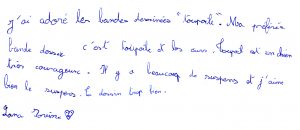 J'ai adoré les bandes dessinées "Toupoil". Ma préférée
bande dessiné c'est Toupoil et les ours. Toupoil est un chien
très courageux. Il y a beaucoup de suspens et j'aime
bien le suspens. Le dessin trop bien.
Lana